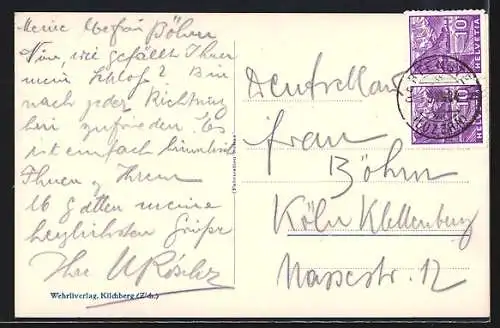 Meine liebe Frau Böhm
Nun, wie gefällt Ihnen
mein Schloß? Bin
nach jeder Richtung
hin zufrieden. Es
ist einfach himmlisch
Ihnen u. Ihrem
Gatten meine
herzlichsten Grüße
Ihre
Wehrliverlag, Kilchberg (Zch.)
Deutschland
Frau
Böhm
Köln Klettenberg
Nassestr. 12
HELVETIA
10
HELVETIA
10